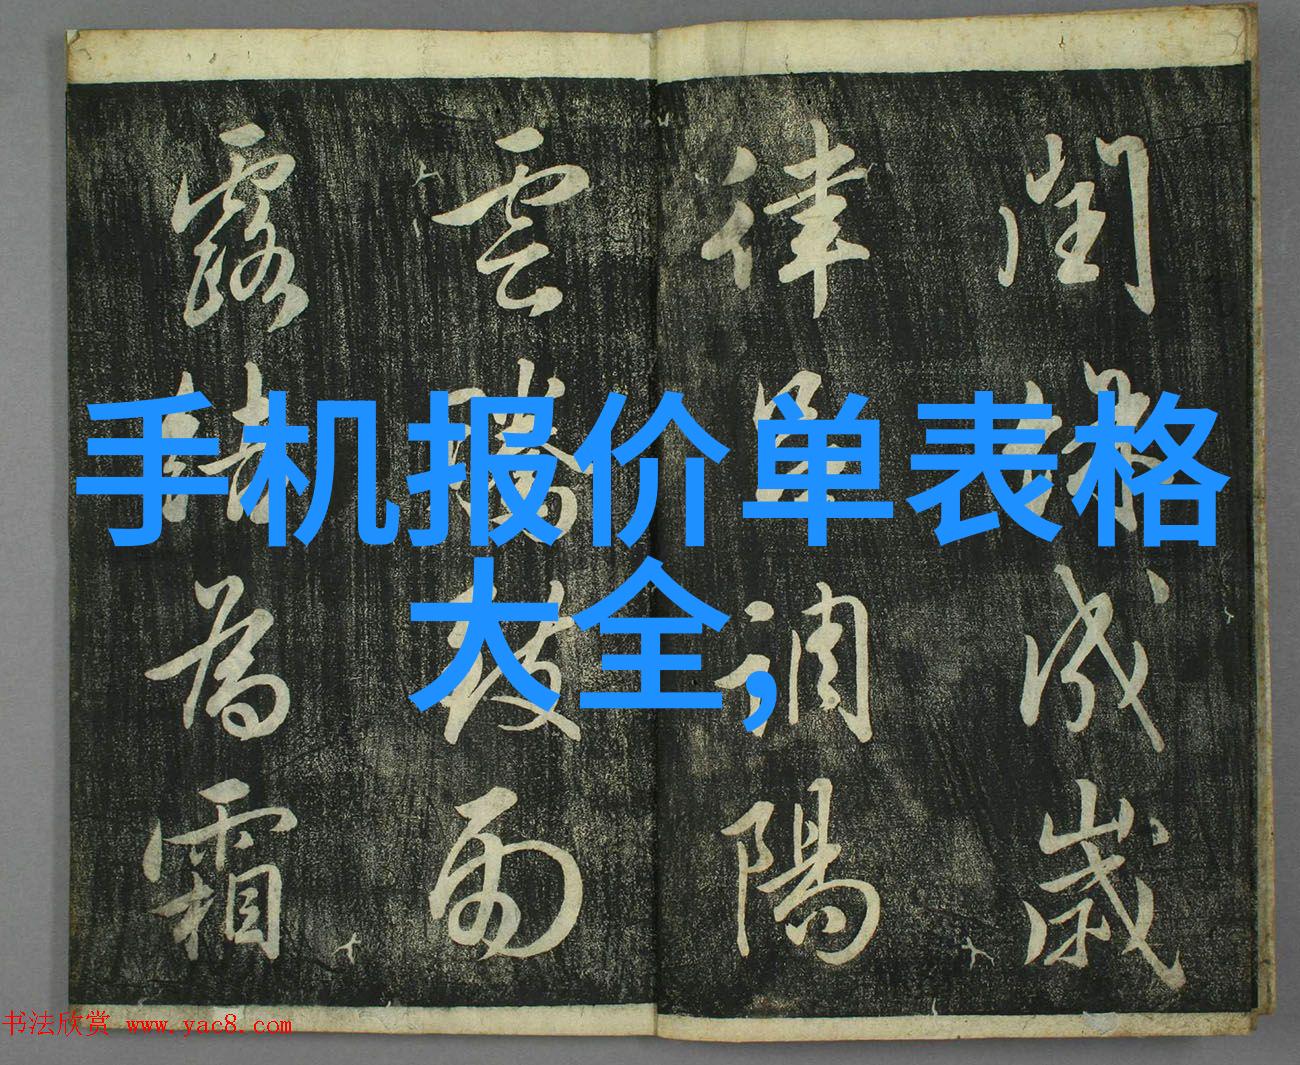 閏餘成歲
律呂調陽
雲騰致雨
露結為霜
手机报价单表格
大全,
书法欣赏 www.yac8.com